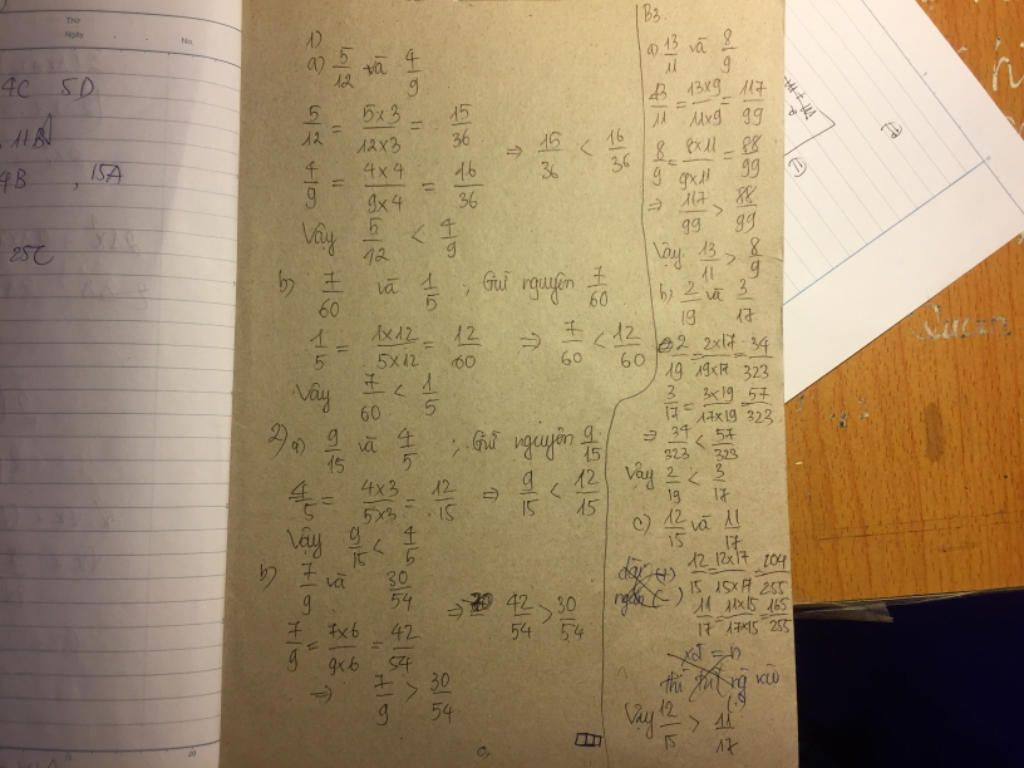 Thứ
Ngày
No.
4C 5D
11B
4B , 15A
25C
1)
a) 5/12 và 4/9
5/12 = 5x3/12x3 = 15/36
4/9 = 4x4/9x4 = 16/36
⇒ 15/36 < 16/36
Vậy 5/12 < 4/9
b) 7/60 và 1/5 ; Giữ nguyên 7/60
1/5 = 1x12/5x12 = 12/60 ⇒ 7/60 < 12/60
Vậy 7/60 < 1/5
2) a) 9/15 và 4/5 ; Giữ nguyên 9/15
4/5 = 4x3/5x3 = 12/15 ⇒ 9/15 < 12/15
Vậy 9/15 < 4/5
b) 7/9 và 30/54
7/9 = 7x6/9x6 = 42/54
⇒ 42/54 > 30/54
⇒ 7/9 > 30/54
B3.
a) 13/11 và 8/9
13/11 = 13x9/11x9 = 117/99
8/9 = 8x11/9x11 = 88/99
⇒ 117/99 > 88/99
Vậy 13/11 > 8/9
b) 2/19 và 3/17
2/19 = 2x17/19x17 = 34/323
3/17 = 3x19/17x19 = 57/323
⇒ 34/323 < 57/323
Vậy 2/19 < 3/17
c) 12/15 và 11/17
12/15 = 12x17/15x17 = 204/255
11/17 = 11x15/17x15 = 165/255
Vậy 12/15 > 11/17